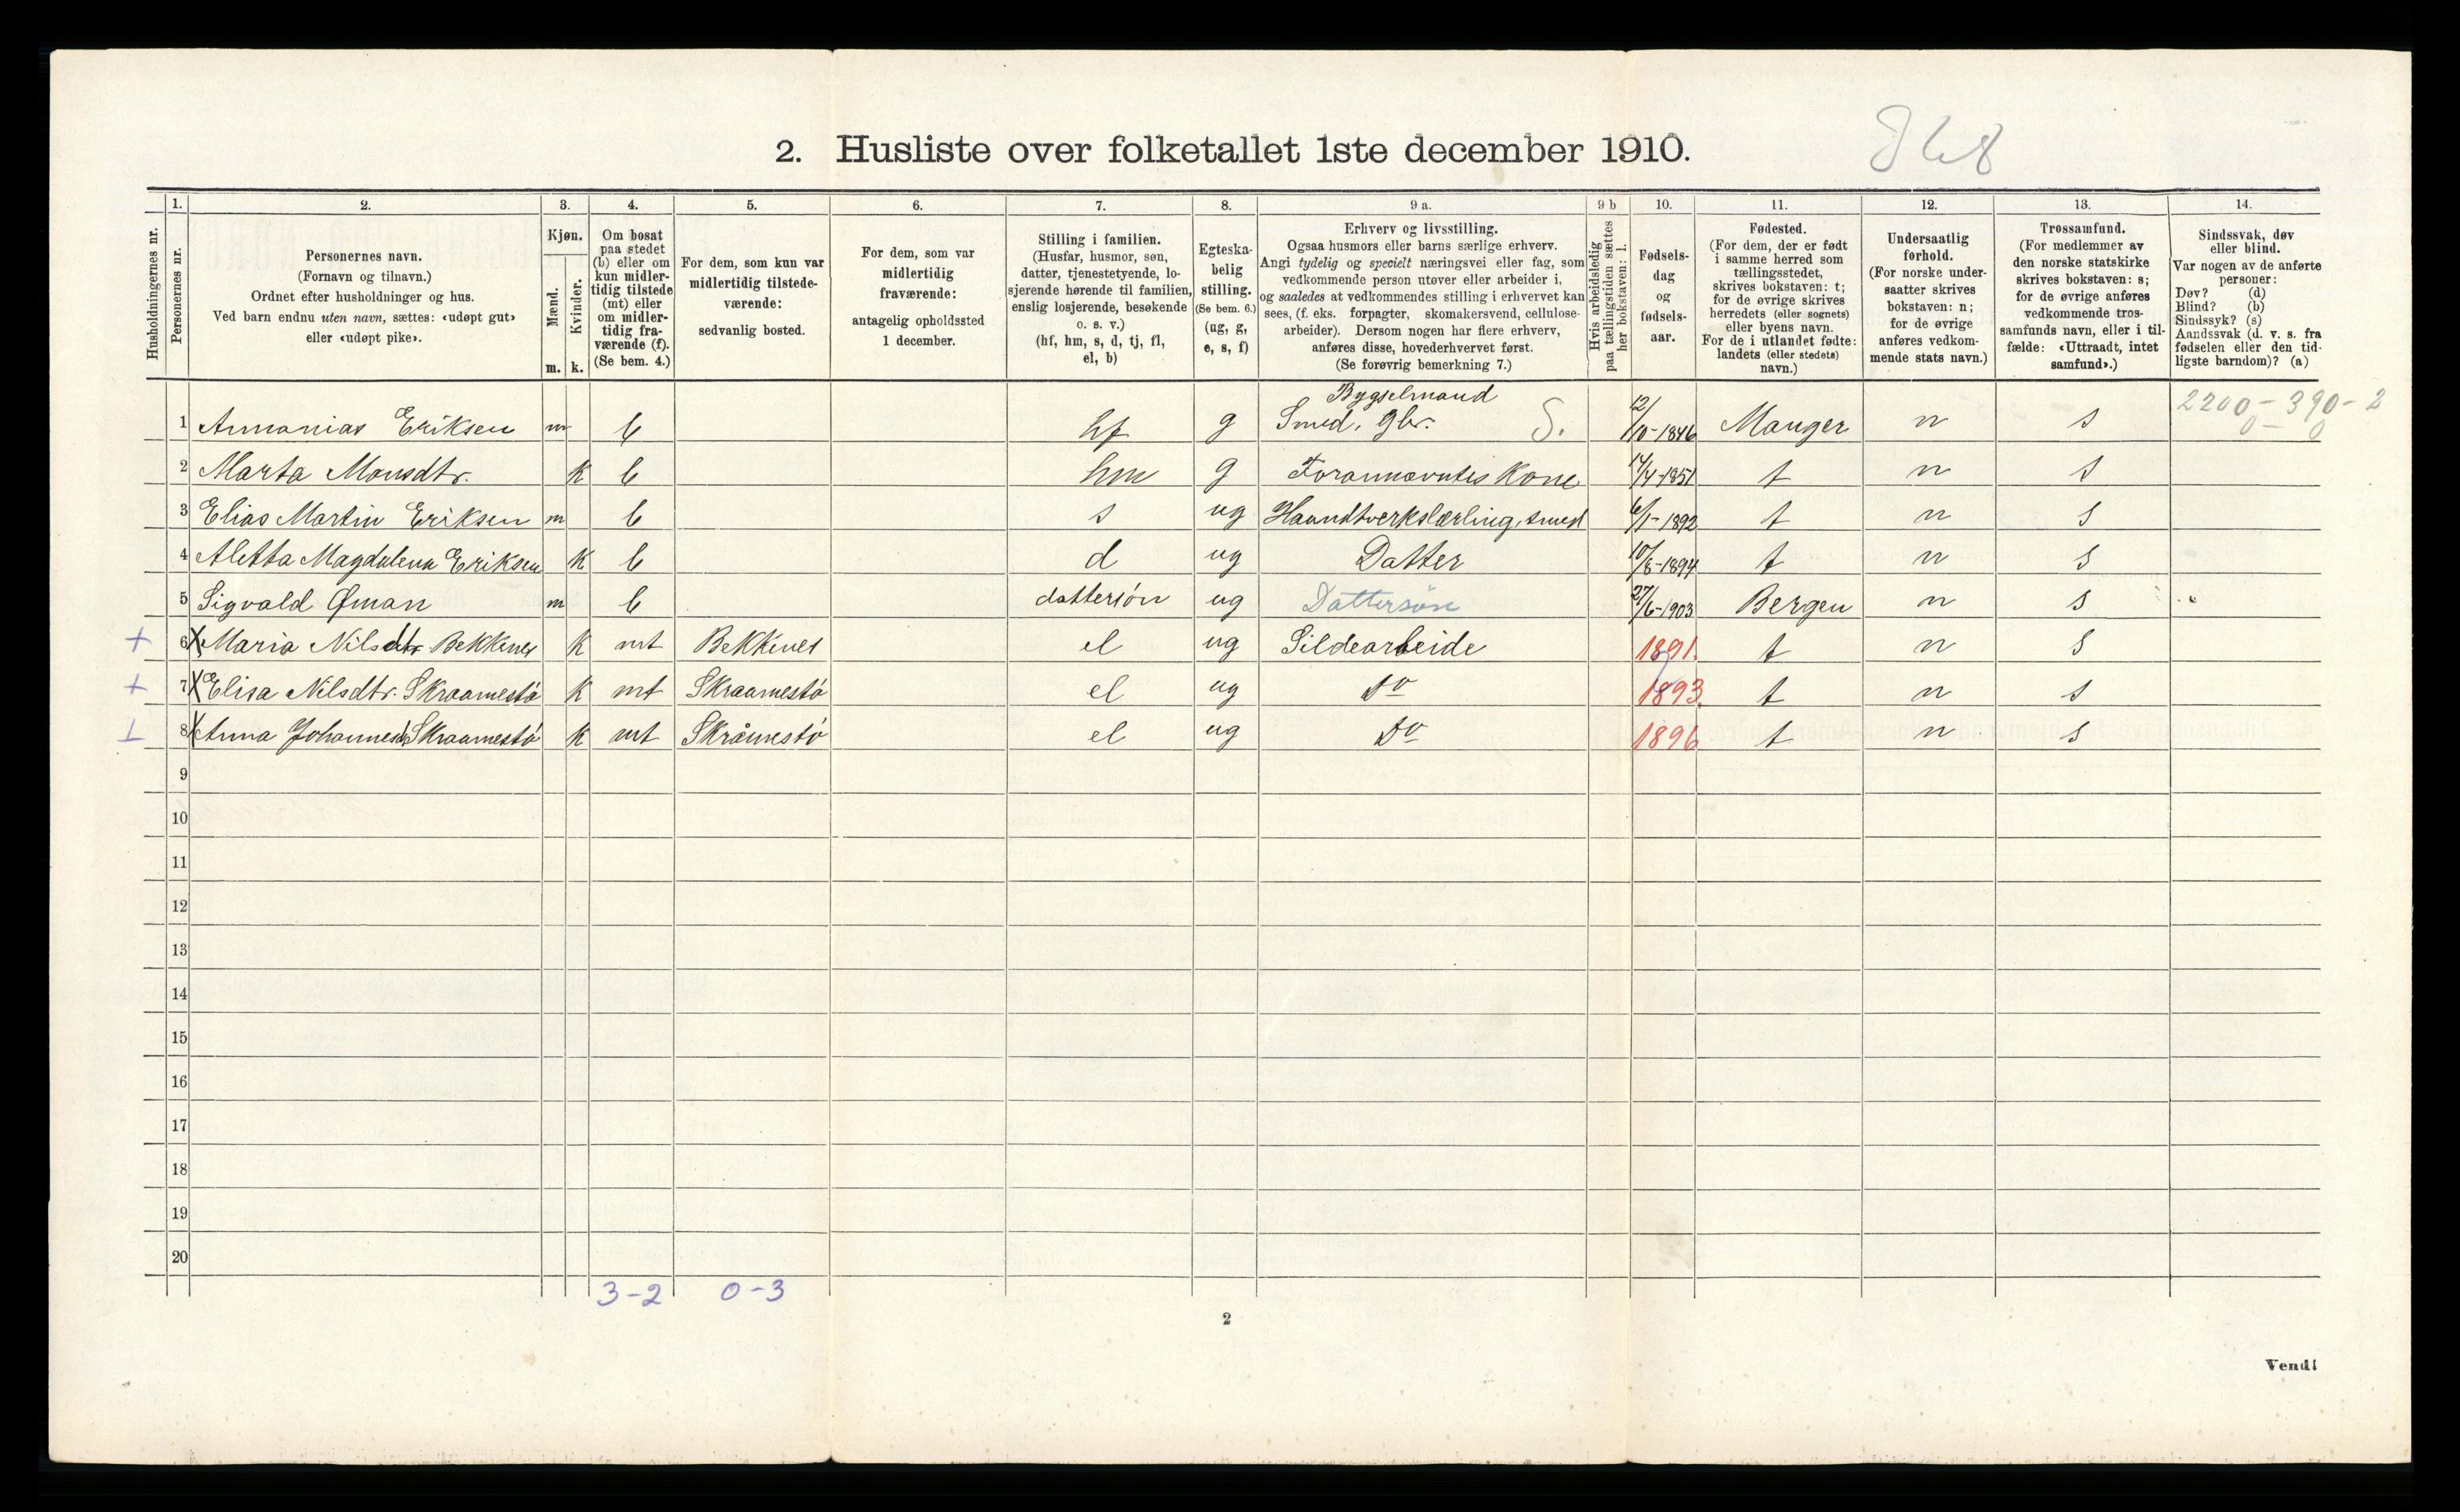 2. Husliste over folketallet 1ste december 1910.
Husholdningernes nr.
1.
Personernes nr.
2.
Personernes navn.
(Fornavn og tilnavn.)
Ordnet efter husholdninger og hus.
Ved barn endnu uten navn, sættes: «udøpt gut»
eller «udøpt pike».
3.
Kjøn.
Mænd.
Kvinder.
m. k.
4.
Om bosat
paa stedet
(b) eller om
kun midler-
tidig tilstede
(mt) eller
om midler-
tidig fra-
værende (f).
(Se bem. 4.)
5.
For dem, som kun var
midlertidig tilstede-
værende:
sedvanlig bosted.
6.
For dem, som var
midlertidig
fraværende:
antagelig opholdssted
1 december.
7.
Stilling i familien.
(Husfar, husmor, søn,
datter, tjenestetyende, lo-
sjerende hørende til familien,
enslig losjerende, besøkende
o. s. v.)
(hf, hm, s, d, tj, fl,
el, b)
8.
Egteska-
belig
stilling.
(Se bem. 6.)
(ug, g,
e, s, f)
9 a.
Erhverv og livsstilling.
Ogsaa husmors eller barns særlige erhverv.
Angi tydelig og specielt næringsvei eller fag, som
vedkommende person utøver eller arbeider i,
og saaledes at vedkommendes stilling i erhvervet kan
sees, (f. eks. forpagter, skomakersvend, cellulose-
arbeider). Dersom nogen har flere erhverv,
anføres disse, hovederhvervet først.
(Se forøvrig bemerkning 7.)
9 b
Hvis arbeidsledig
paa tællingstiden sættes
her bokstaven: l.
10.
Fødsels-
dag
og
fødsels-
aar.
11.
Fødested.
(For dem, der er født
i samme herred som
tællingsstedet,
skrives bokstaven: t;
for de øvrige skrives
herredets (eller sognets)
eller byens navn.
For de i utlandet fødte:
landets (eller stedets)
navn.)
12.
Undersaatlig
forhold.
(For norske under-
saatter skrives
bokstaven: n;
for de øvrige
anføres vedkom-
mende stats navn.)
13.
Trossamfund.
(For medlemmer av
den norske statskirke
skrives bokstaven: s;
for de øvrige anføres
vedkommende tros-
samfunds navn, eller i til-
fælde: «Uttraadt, intet
samfund».)
14.
Sindssvak, døv
eller blind.
Var nogen av de anførte
personer:
Døv? (d)
Blind? (b)
Sindssyk? (s)
Aandssvak (d. v. s. fra
fødselen eller den tid-
ligste barndom)? (a)
Bygselmand 2200-390-2
1 Annanias Eriksen m b hf g Smed, gbr. S. 12/10-1846 Manger n s 0-0
2 Marta Monsdtr. k b hm g Forannævntes Kone 14/4-1851 t n s
3 Elias Martin Eriksen m b s ug Haandtverkslærling, smed 6/1-1892 t n s
4 Aletta Magdalena Eriksen k b d ug Datter 10/8-1894 t n s
5 Sigvald Øman m b dattersön ug Dattersön 27/6-1903 Bergen n s
+ 6 X Maria Nilsdtr Bekkenes k mt Bekkenes el ug Sildearbeide 1891. t n s
+ 7 X Elisa Nilsdtr. Skraamestö k mt Skraamestö el ug Do 1893. t n s
⊥ 8 X Anna Johannesd. Skraamestö k mt Skråmestö el ug Do 1896 t n s
9
10
11
12
13
14
15
16
17
18
19
20
3-2 0-3
2
Vend!